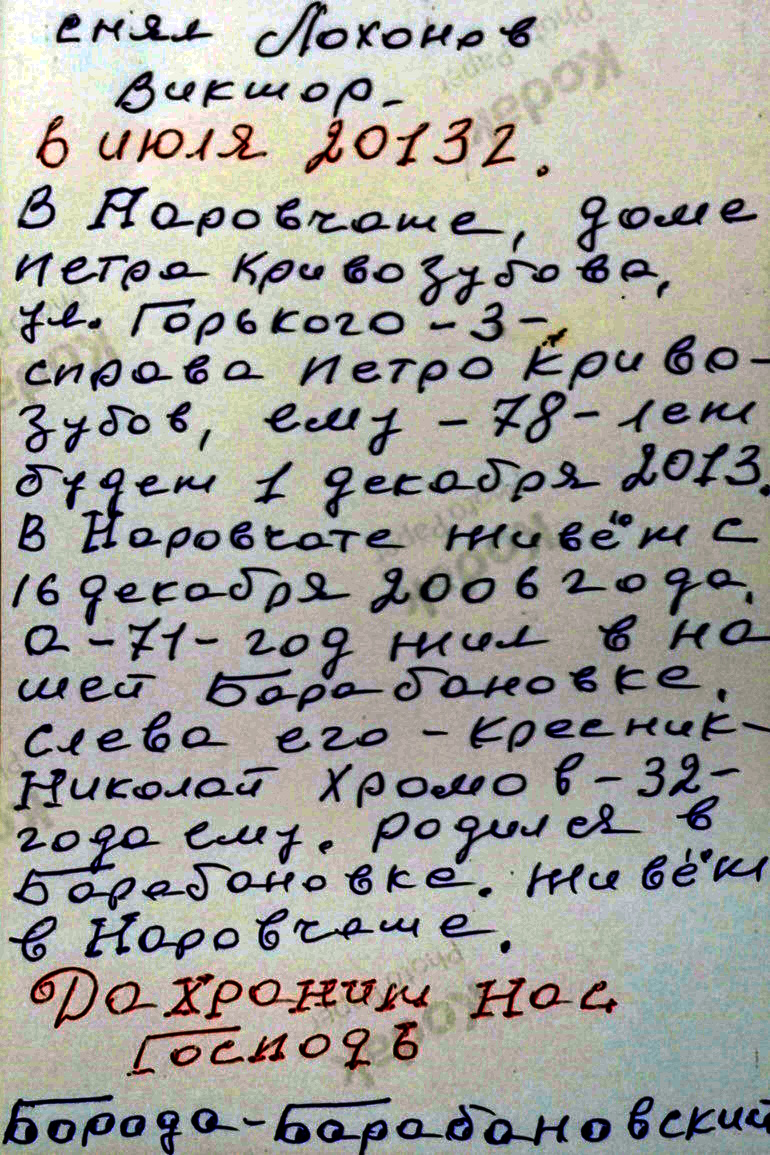 снял Лохонов
Виктор.
6 июля 2013г.
В Наровчате, доме
Петра Кривозубова,
ул. Горького - 3 -
справа Петро Криво-
зубов, ему - 78 - лет
будет 1 декабря 2013.
В Наровчате живёт с
16 декабря 2006 года,
а - 71 - год жил в на
шей Барабановке.
слева его - кресник -
Николай Хромов - 32 -
года ему. родился в
Барабановке. живёт
в Наровчате.
Да хранит нас
Господь
Борода-Барабановский
Kodak
Kodak
Kodak